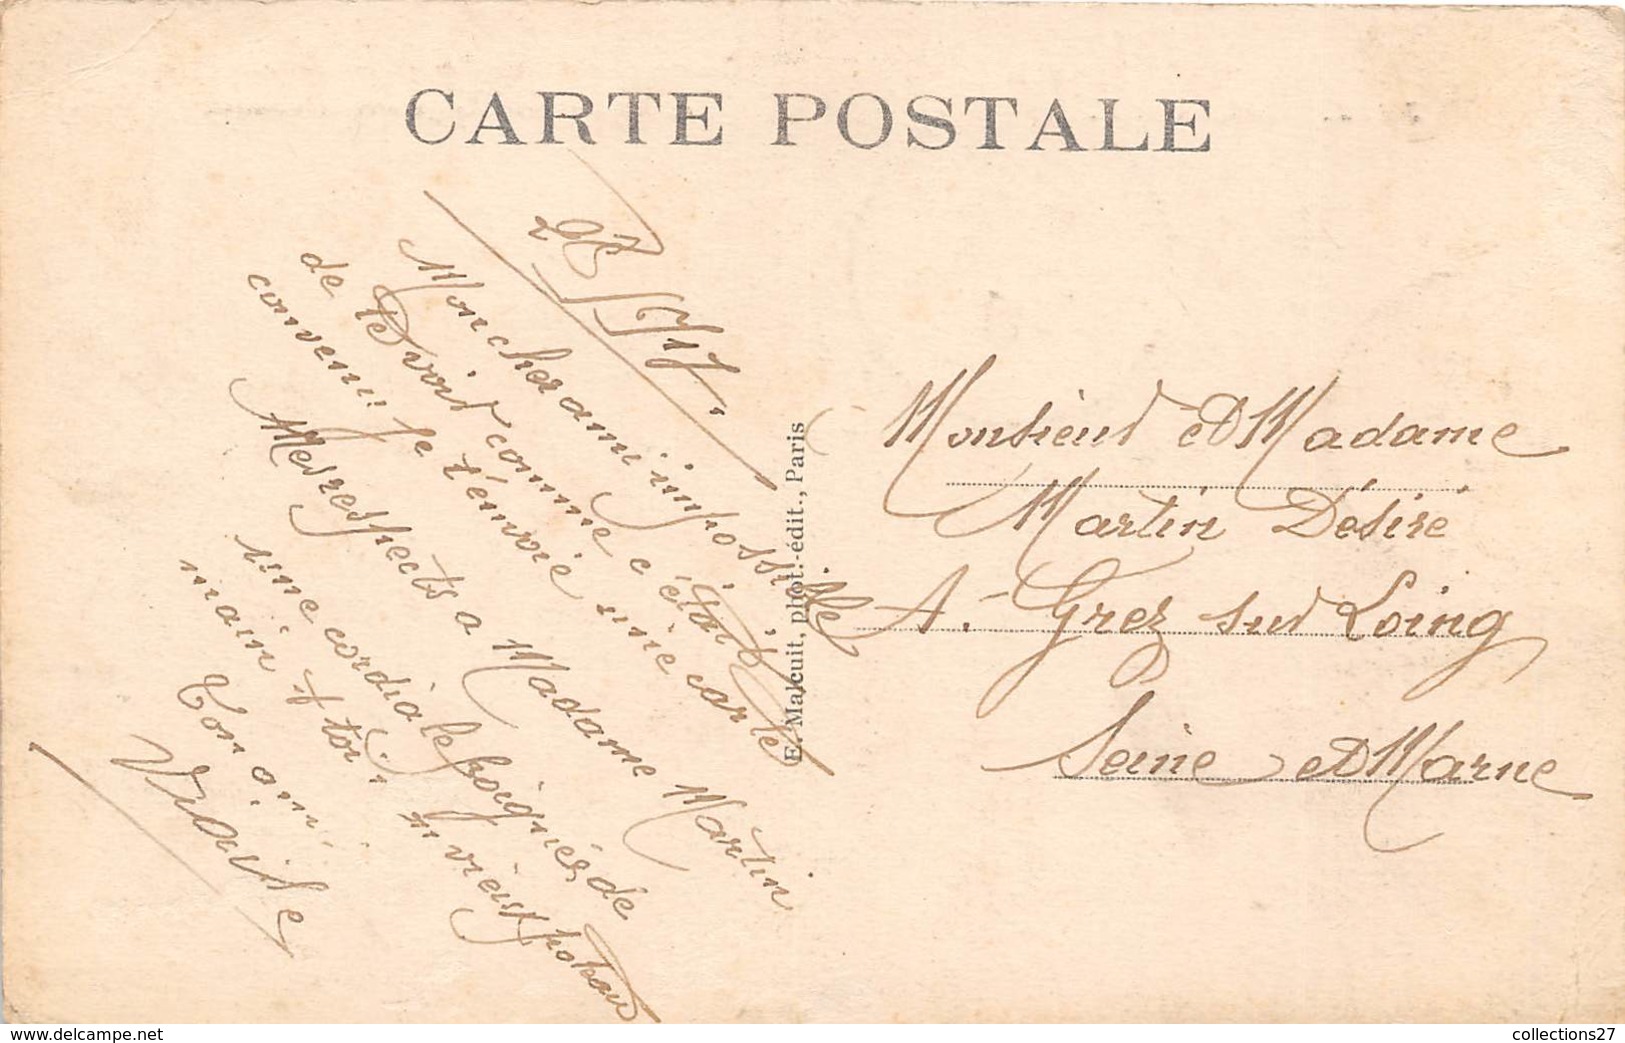 CARTE POSTALE
Mon cher ami impossible
de te voir comme c'était
convenu je t'envoie une carte
Mes respects a Madame Martin
une cordiale poignés de
main & toi m vieux poteau
Ton ami
E. Malcuit, phot.-édit., Paris
Monsieur et Madame
Martin Désiré
A. Grez sur Loing
Seine et Marne
www.delcampe.net
collections27